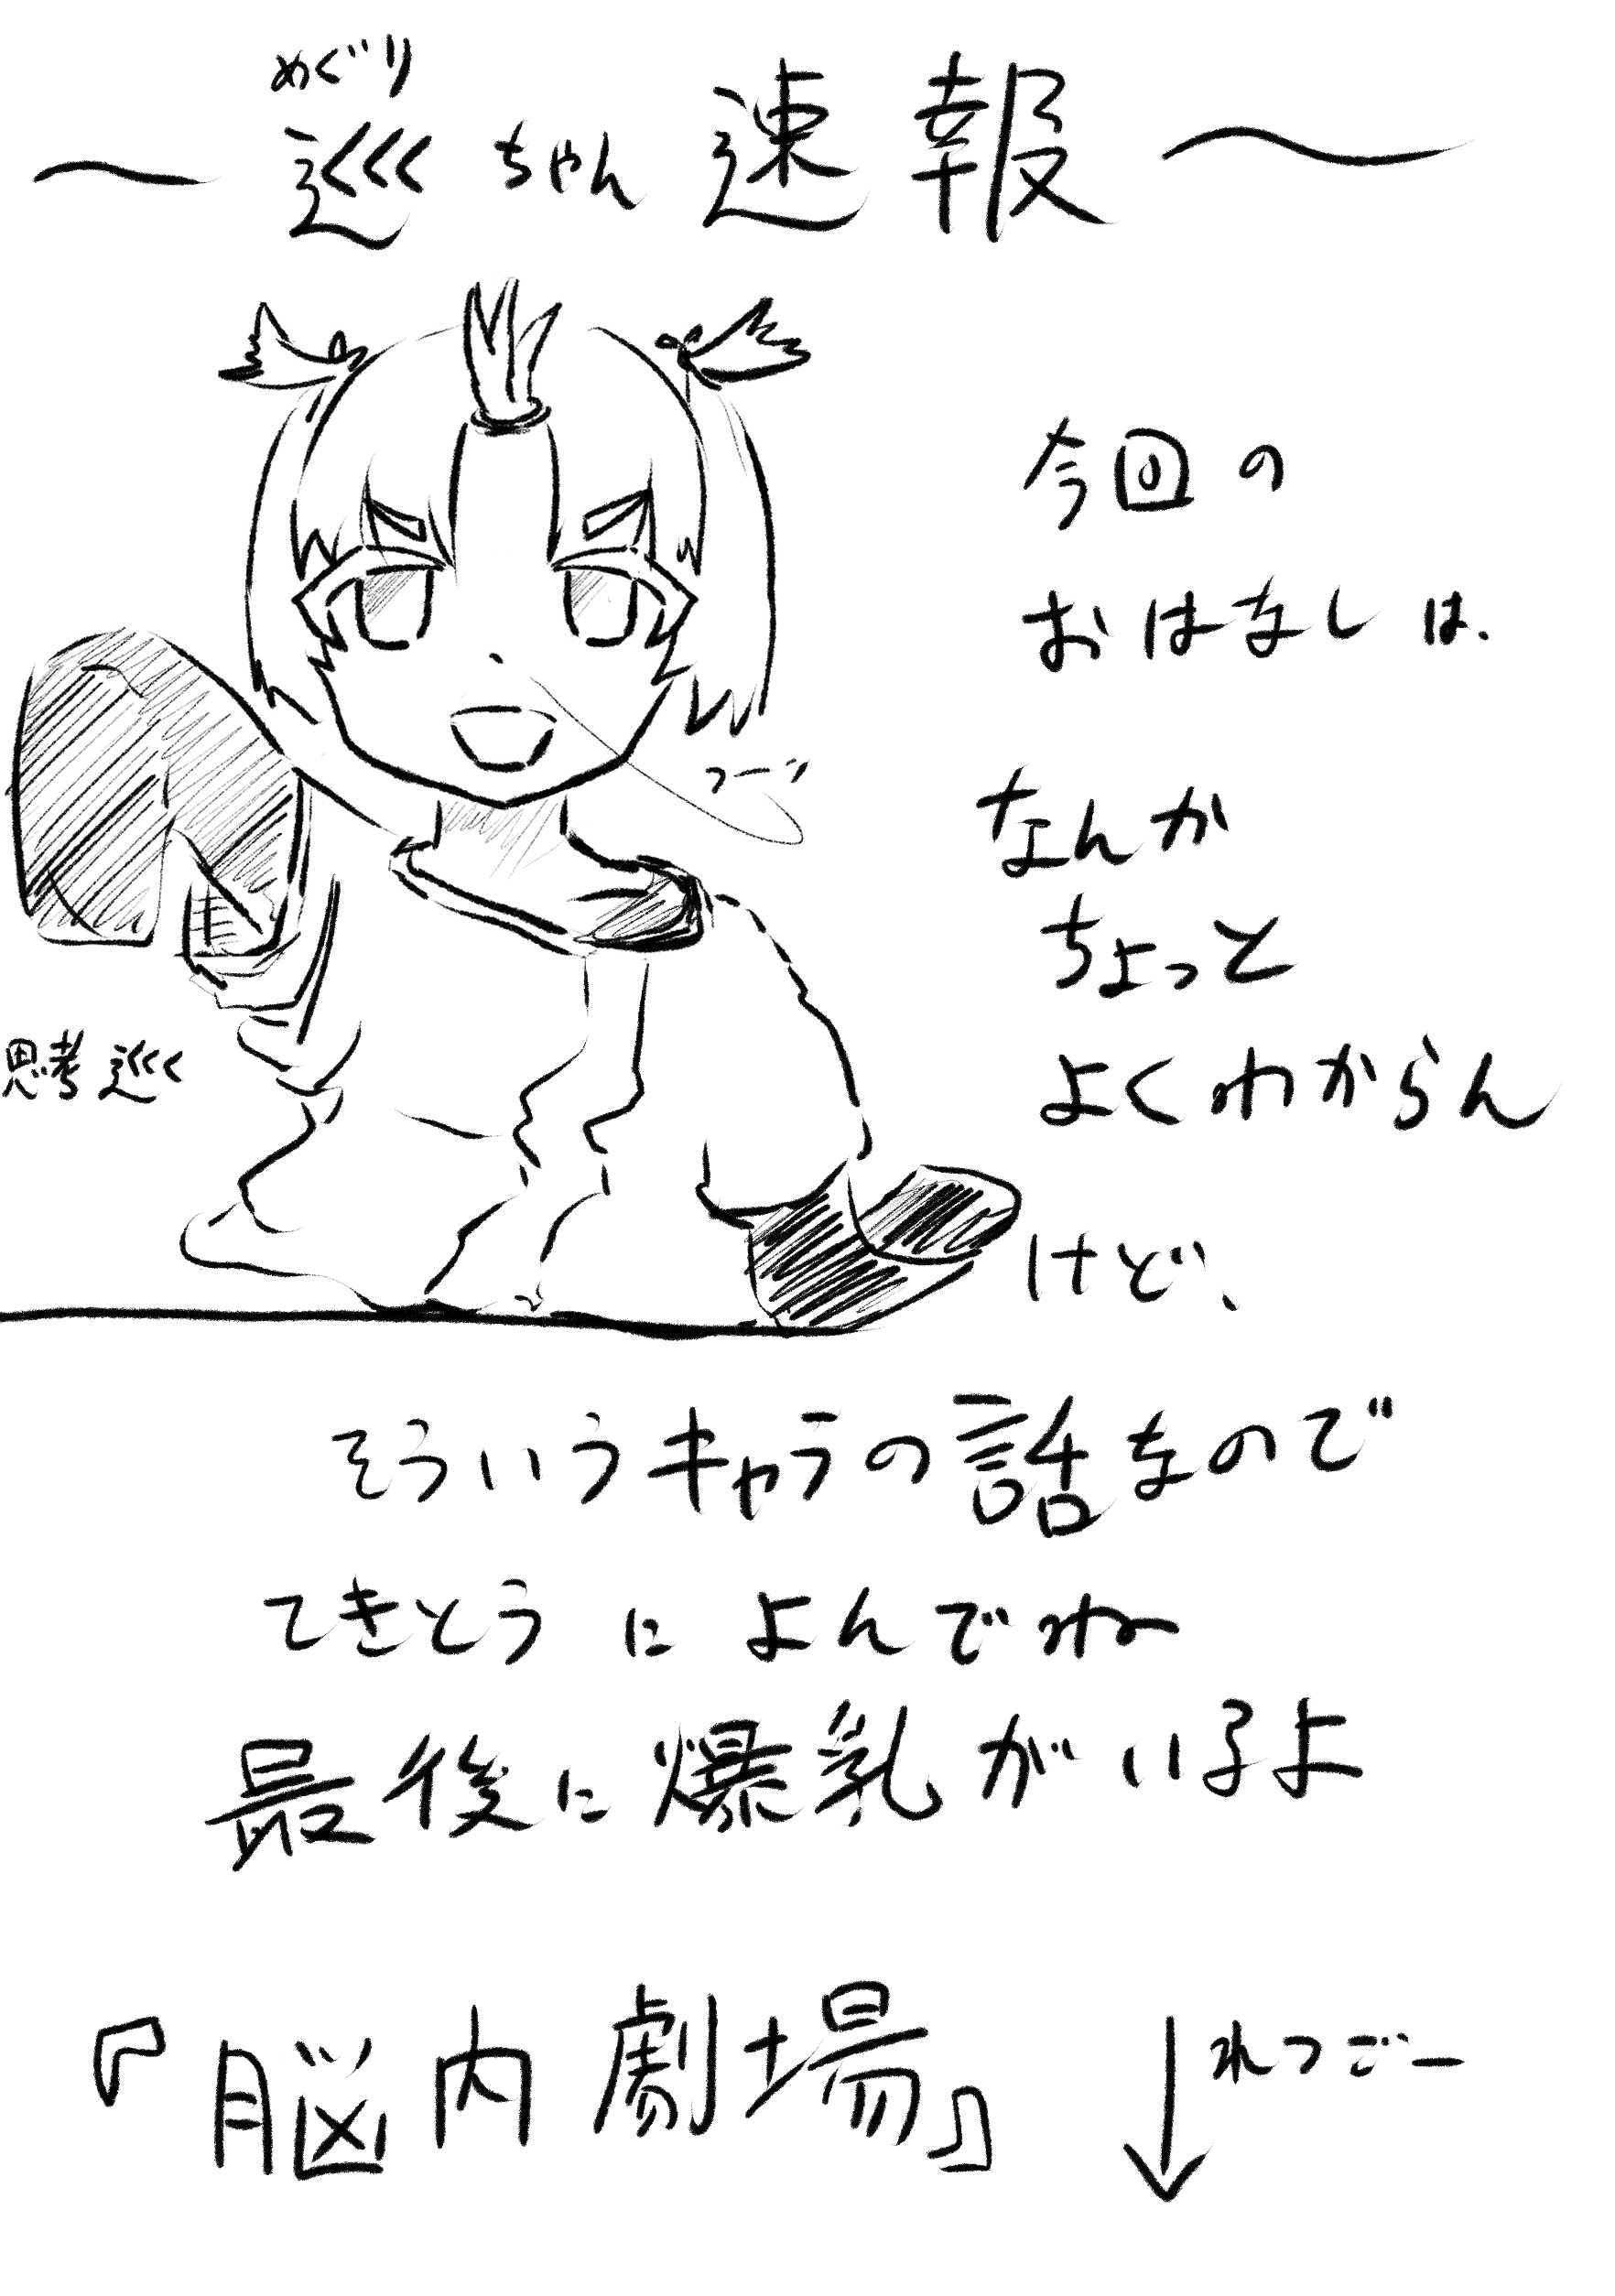 めぐり
〜巡ちゃん速報〜
今回の
おはなしは、
なんか
ちょっと
よくわからん
けど、
思考巡
そういうキャラの話なので
てきとうによんでね
最後に爆乳がいるよ
『脳内劇場』
↓れつごー